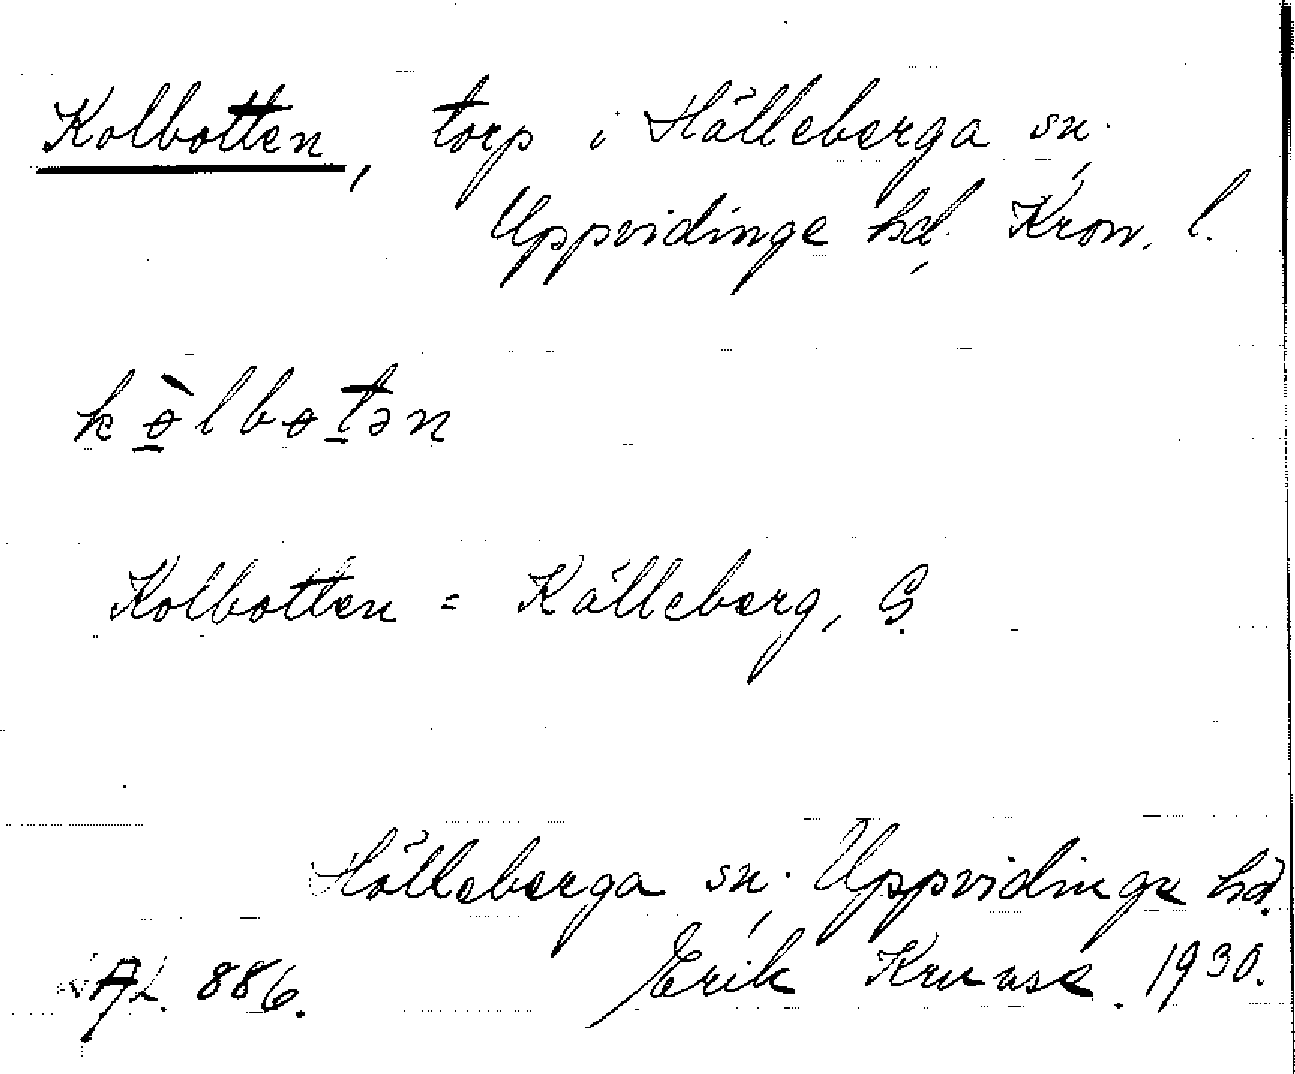 Kolbotten, torp i Hälleberga sn.,
Uppvidinge hd., Kron. l.
kòlbotən
Kolbotten = Källeberg, S.
Hälleberga sn., Uppvidinge hd.
Af. 886. Erik Kruuse. 1930.